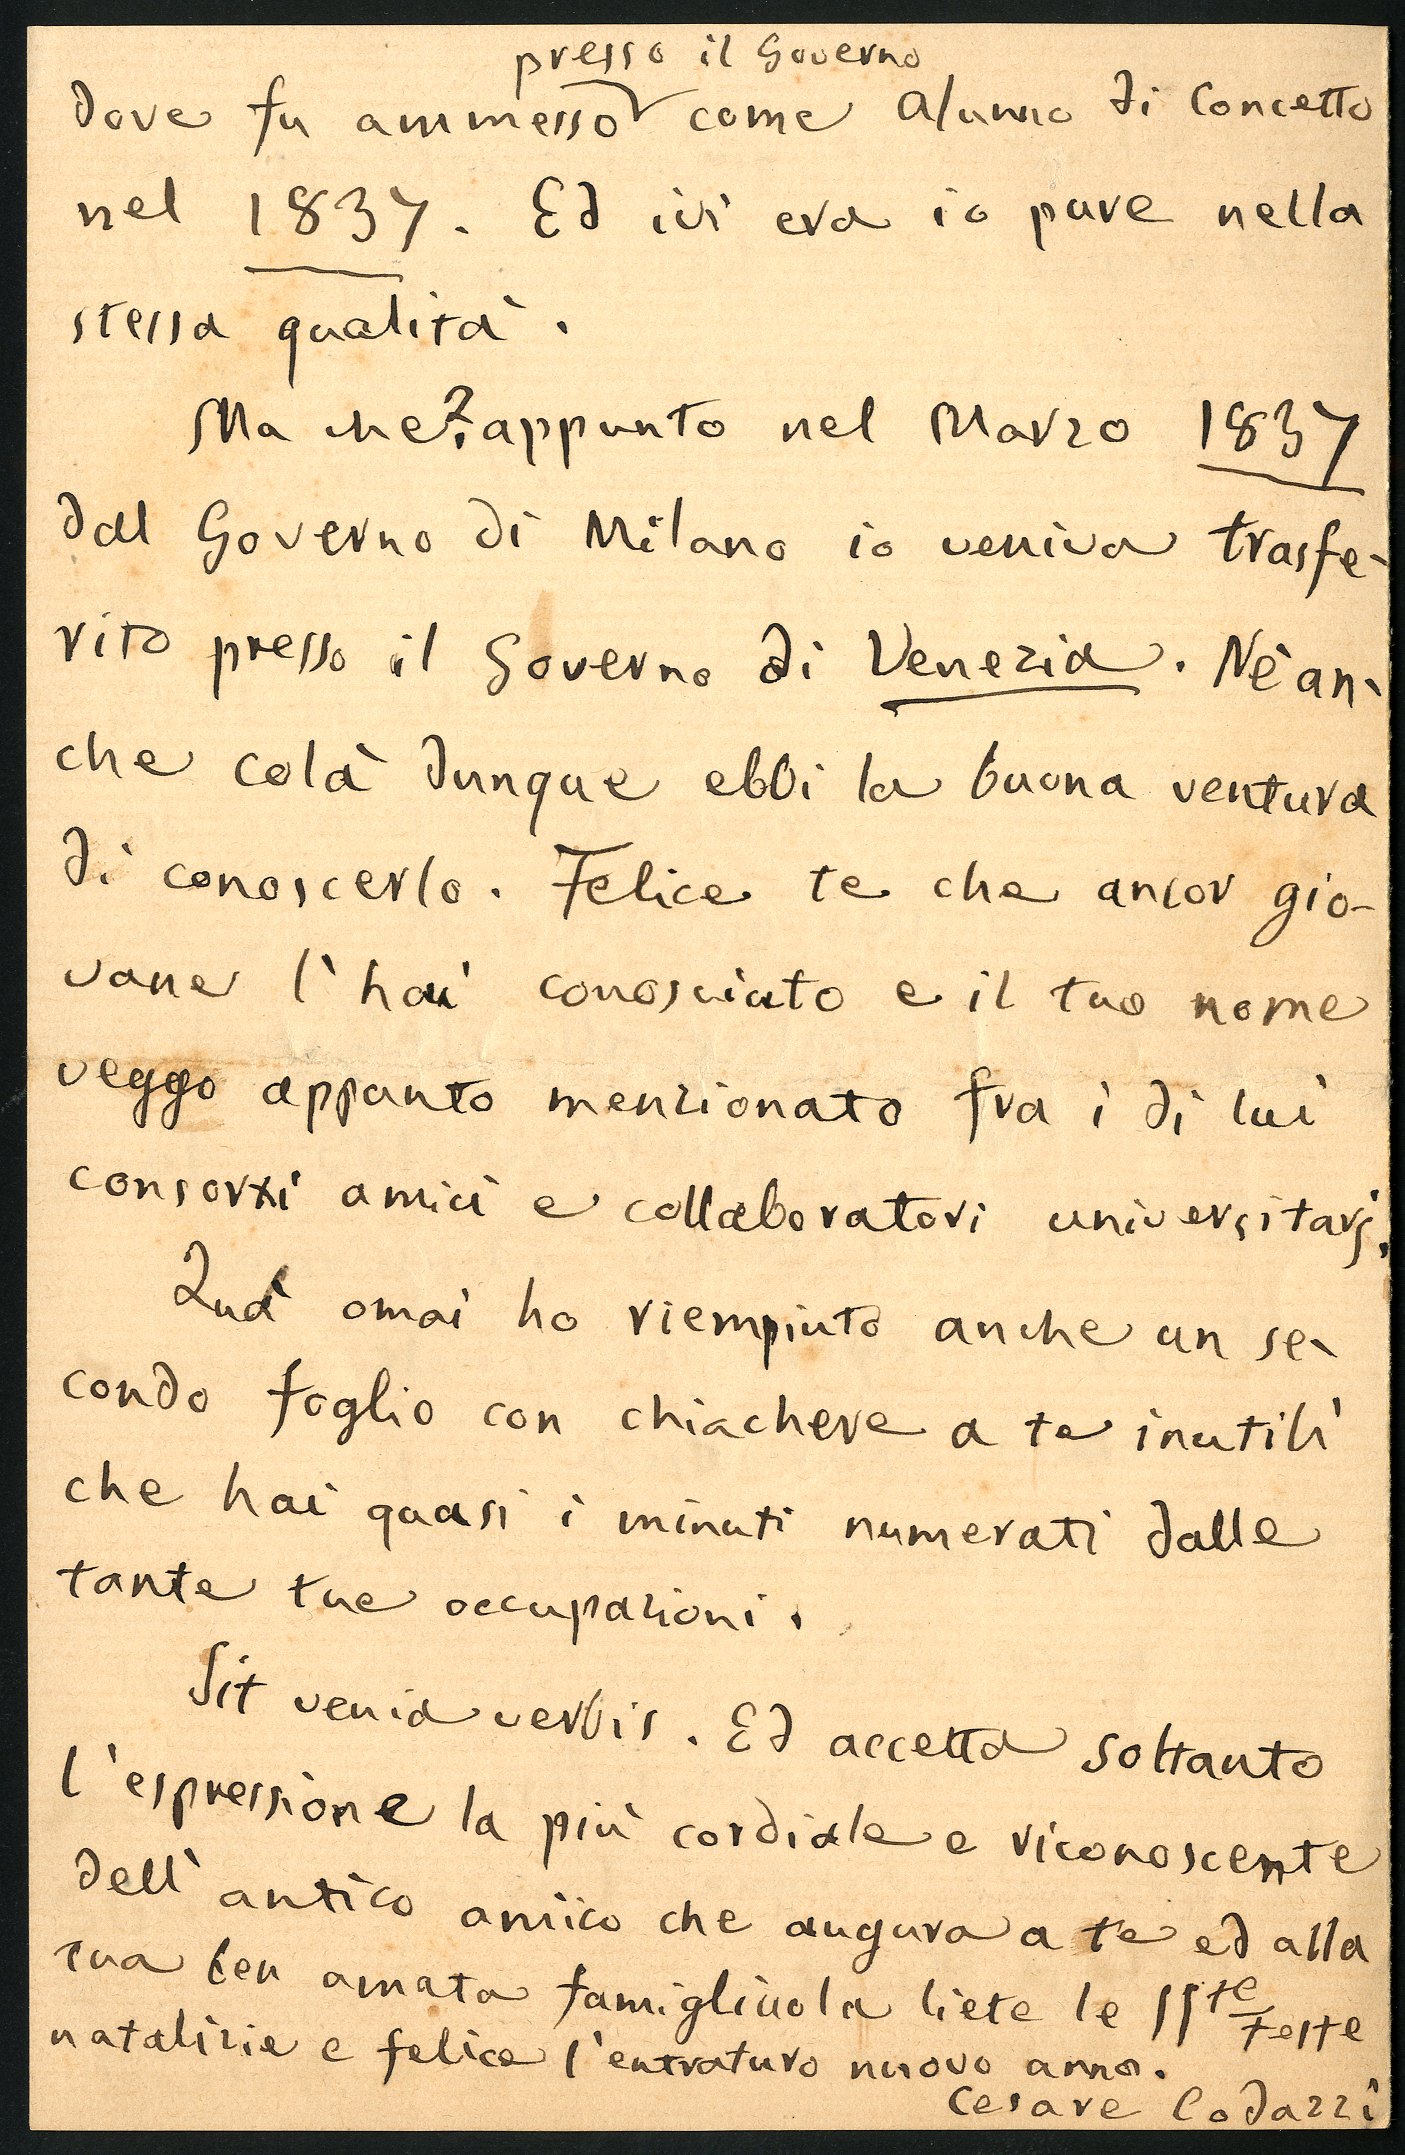 presso il Governo
dove fu ammesso come Alunno di Concetto
nel 1837. Ed ivi era io pure nella
stessa qualità.
Ma che? appunto nel Marzo 1837
dal Governo di Milano io veniva trasfe-
rito presso il Governo di Venezia. Nè an-
che colà dunque ebbi la buona ventura
di conoscerlo. Felice te che ancor gio-
vane l'hai conosciuto e il tuo nome
veggo appunto menzionato fra i di lui
consorzi amici e collaboratori universitarj.
Quà omai ho riempiuto anche un se-
condo foglio con chiachere a te inutili
che hai quasi i minuti numerati dalle
tante tue occupazioni.
Sit venia verbis. Ed accetta soltanto
l'espressione la più cordiale e riconoscente
dell'antico amico che augura a te ed alla
tua ben amata famigliuola liete le SSte Feste
natalizie e felice l'entraturo nuovo anno.
Cesare Codazzi